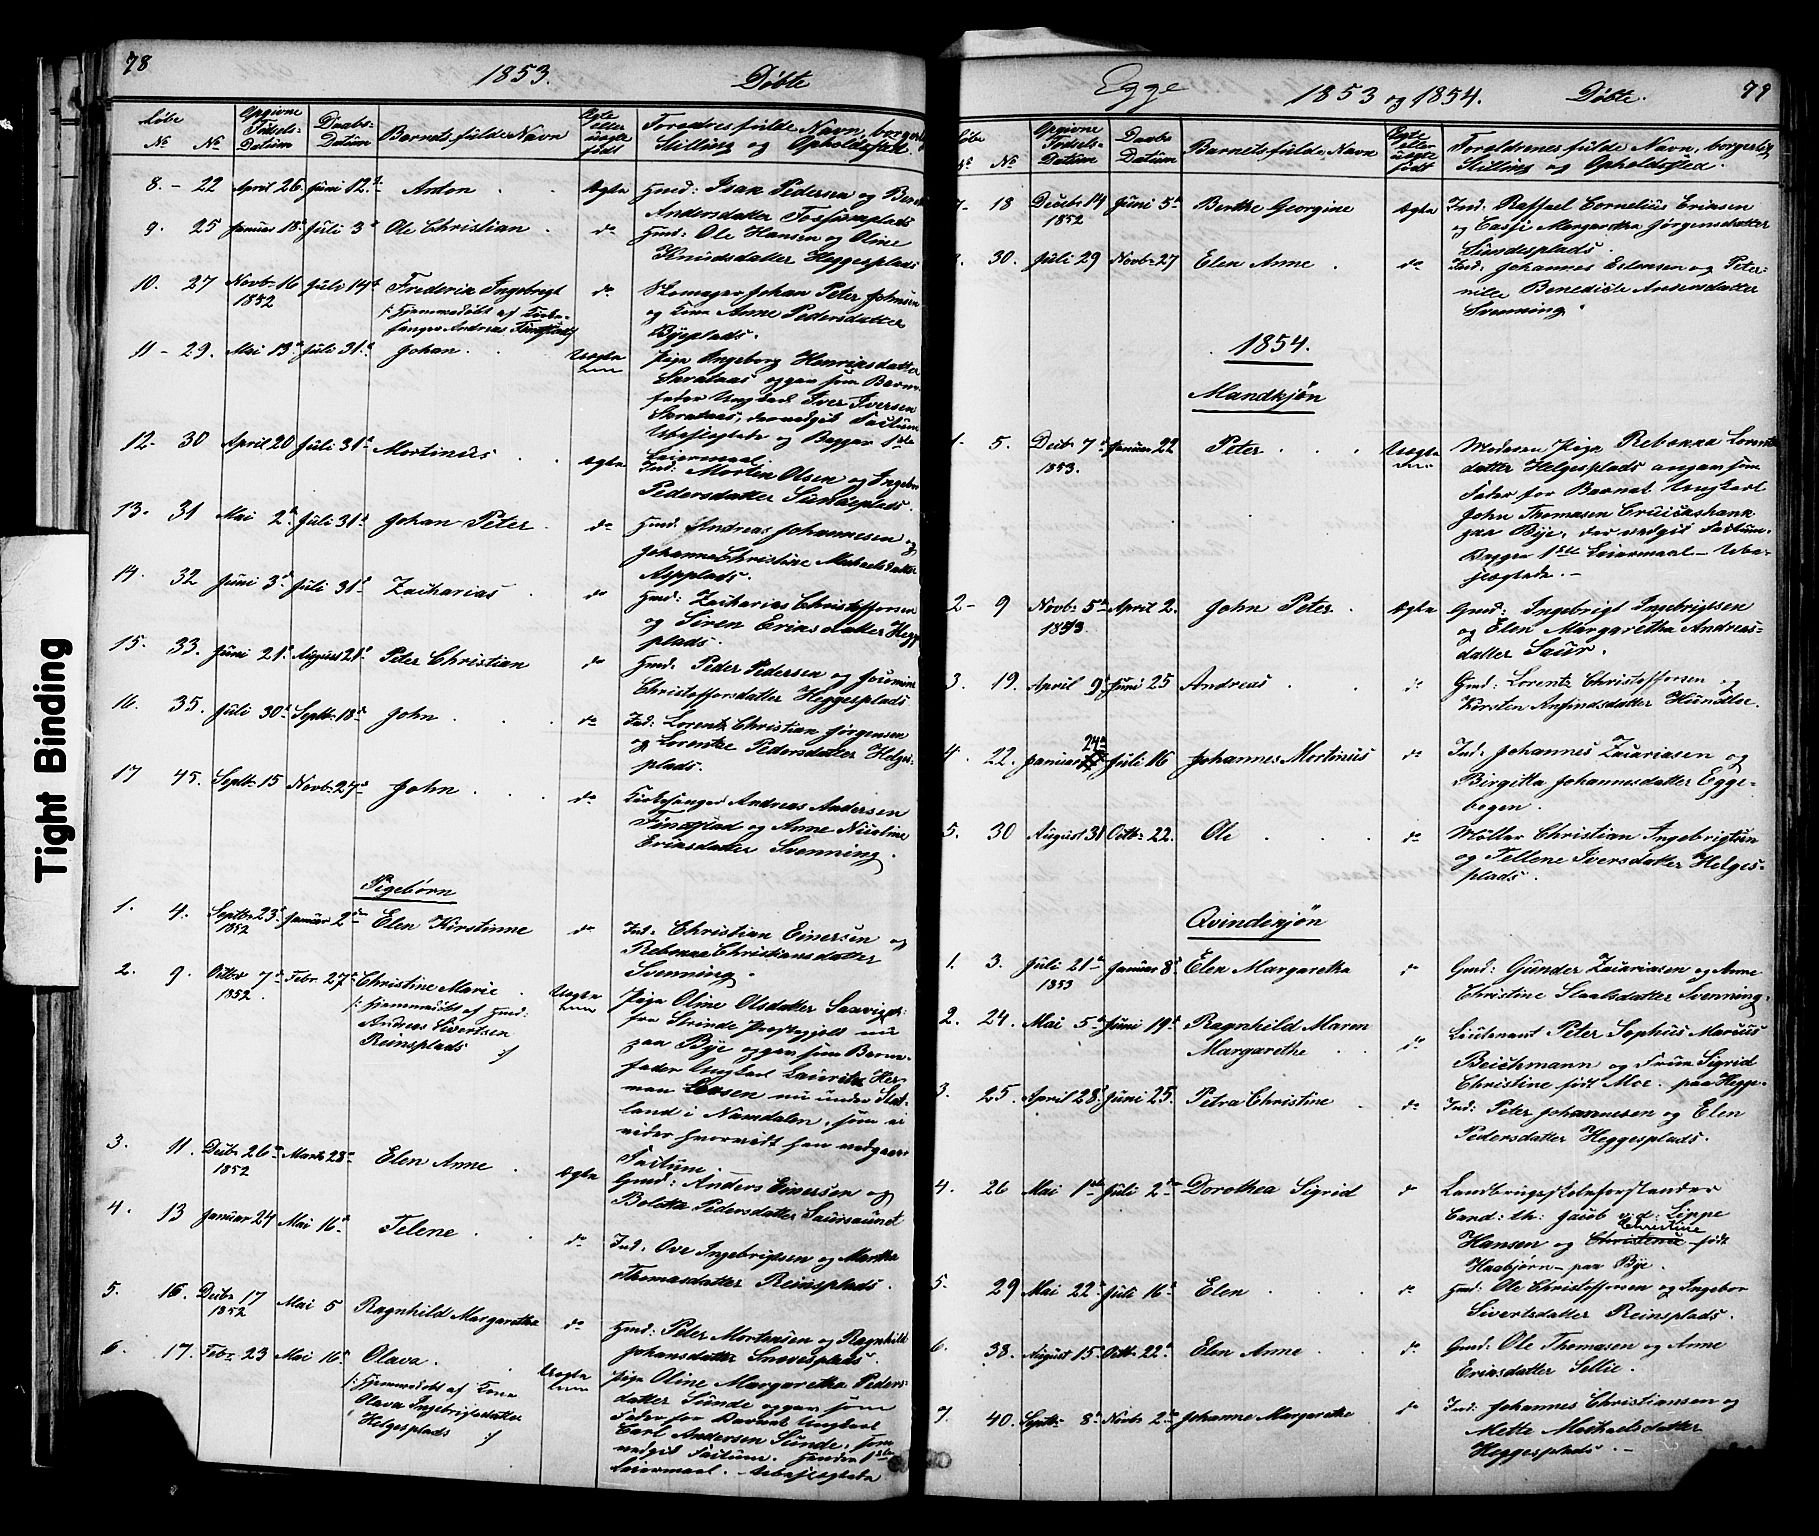 78
1853.
Döbte
Löbe
№ №
Opgivne Fødsels-Datum
Daabs-Datum
Barnets fulde Navn
Ægte eller uægte født
Forældres fulde Navn, borgerl.
Stilling og Opholdssted.
8. - 22 April 26 Juni 12te Anton Ægte Gmd: Isak Pedersen og
Andersdatter Fossumplads
9. 25 Januar 18 Juli 3de Ole Christian do Gmd: Ole Hansen og Oline
Knudsdatter Heggesplads
10. 27 Novbr 16 1852 Juli 14 Frederik Ingebrigt do Skomager Johan Peter Johnsen
/: Hjemmedöbt af Kirke- og Kone Anne Pedersdatter
sanger Andreas Finstad :/ Byeplads.
11 - 29. Mai 13de Juli 31te Johan Uægte Pige Ingeborg Henriksdatter
opgav som Barne-
fader Ungkarl Iver Iversen
12- 30 April 20 Juli 31te Mortinus Ubeslægtede og Begges 1ste
Leiermaal.
Ægte Ind: Morten Olsen og
Pedersdatter Sundeplads.
13. 31 Mai 2de Juli 31te Johan Peter do Gmd: Andreas Johannesen og
Johanna Christine Michaelsdatter
Aspplads.
14. 32 Juni 3de Juli 31te Zacharias do Gmd: Zacharias Christoffersen
og Siren Eriksdatter Hegge-
plads.
15. 33. Juni 21de August 21de Peter Christian do Gmd: Peder Pedersen og
Christoffersdatter Heggesplads
16. 35. Juli 30te Septbr 18de John do Ind: Lorentz Christian Jørgensen
og Lorentze Pedersdatter Helges-
plads.
17 45. Septbr 15 Novbr 27de John do Kirkesanger Andreas Andersen
Finstad og Anne Nicoline
Eriksdatter Svenning.
Pigebørn
1. 4. Septbr 23de 1852 Januar 2den Elen Kirstinne do Ind: Christian Einersen og
Rebekka Christiansdatter
Svenning.
2. 9. Octbr 7de 1852. Febr. 27de Christine Marie Uægte Pige Oline Olsdatter
/: Hjemmedöbt af Gmd: fra Strinde Præstegjeld nu
Andreas Sivertsen paa Bye opgav som Barne-
Reinsplads :/ fader Ungkarl Lauritz Her-
man Larsen nu under
land i Namdalen, som ei
vides hvorvidt han vedgaaer
Factum.
3. 11. Decbr 26de 1852 Marts 28de Elen Anne Ægte Gmd: Anders Einersen og
Boletta Pedersdatter Saursaunet
4. 13 Januar 24 Mai 16de Telene do Ind: Ove Ingebrigtsen og Marthe
Thomasdatter Reinsplads.
5. 16. Decbr 17 1852 Mai 5 Ragnhild Margaretha do Gmd: Peter Mortensen og Ragnhild
Johansdatter
6. 17. Febr 23 Mai 16de Olava. Uægte Pige Oline Margaretha Peders-
/: Hjemmedöbt af Kone datter Sunde opgav som
Olava Ingebrigtsdatter Fader for Barnet Ungkarl
Helgesplads :/ Carl Andersen Sunde, som
vedgik Factum. Hendes 1ste
Leiermaal. - Ubeslægtede
Egge
1853 og 1854.
Döbte.
79
Löbe
№ №
Opgivne Fødsels-Datum
Daabs Datum
Barnets fulde Navn
Ægte eller uægte født
Forældrenes fulde Navn, borgerlig
Stilling og Opholdssted.
7- 18 Decbr 14 1852 Juni 5te Berthe Georgine Ægte Ind: Raffael Cornelius Eriksen
og Margaretha Jørgensdatter
Sundesplads.
30. Juli 29 Novbr 27 Elen Anne do Ind: Johannes Estensen og Peter-
nille Benedicte
Svenning.
1854.
Mandkjön
1. 5. Decbr 7de 1853. Januar 22 Peter Uægte Moderen Pige Rebekka Lorents-
datter Helgesplads angav som
Fader for Barnet Ungkarl
John Thomasen Cruickshank
paa Bye, der vedgik Factum.
Begges 1ste Leiermaal - Ube-
slægtede. -
2- 9 Novbr 5te 1853. April 2. John Peter Ægte Gmd: Ingebrigt Ingebrigtsen
og Elen Margaretha Andreas-
datter Saur.
3. 19. April 9de Juni 25 Andreas do Gmd: Lorentz Christoffersen og
Kirsten Anfindsdatter
4. 22. Januar 24de Juli 16 Johannes Mortinus do Ind: Johannes Zakariasen og
Birgitta Johannesdatter Egge-
bogen.
5. 30 August 31 Octbr 22. Ole do Møller Christian Ingebrigtsen
og Tellene Iversdatter Helges-
plads.
Qvindekjön
1. 3. Juli 21de 1853 Januar 8de Elen Margaretha do Gmd: Gunder Zakariasen og Anne
Christine Svenning.
2. 24. Mai 5te Juni 19de Ragnhild Maren
Margarethe do Lieutenant Peter Sophus Marcus
Beichmann og Frue Sigrid
Christine født Moe. paa Hegge.
3. 25. April 28. Juni 25. Petra Christine do Ind: Peter Johannesen og Elen
Pedersdatter Heggesplads.
4. 26 Mai 1ste Juli 2den Dorothea Sigrid do Landbrugsskoleforstander
Cand: th: Jacob v: d: Lippe
Christine
Hansen og Christense født
Hasbjørn - paa Bye.
5. 29 Mai 22de Juli 16de Elen do Gmd: Ole Christoffersen og Ingebor
Sivertsdatter Reinsplads.
6. 38. August 15 Octbr 22de Elen Anne do Gmd: Ole Thomasen og Anne
Eriksdatter Sellie.
7. 40. Septbr 8de Novbr 2den Johanne Margarethe do Ind: Johannes Christiansen og
Mette Michaelsdatter
Heggesplads. -
Tight Binding